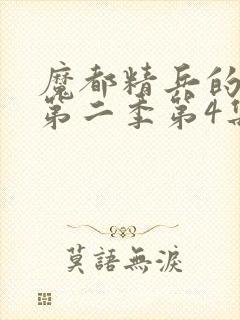 魔都精兵的
第二季第4集
莫語無淚